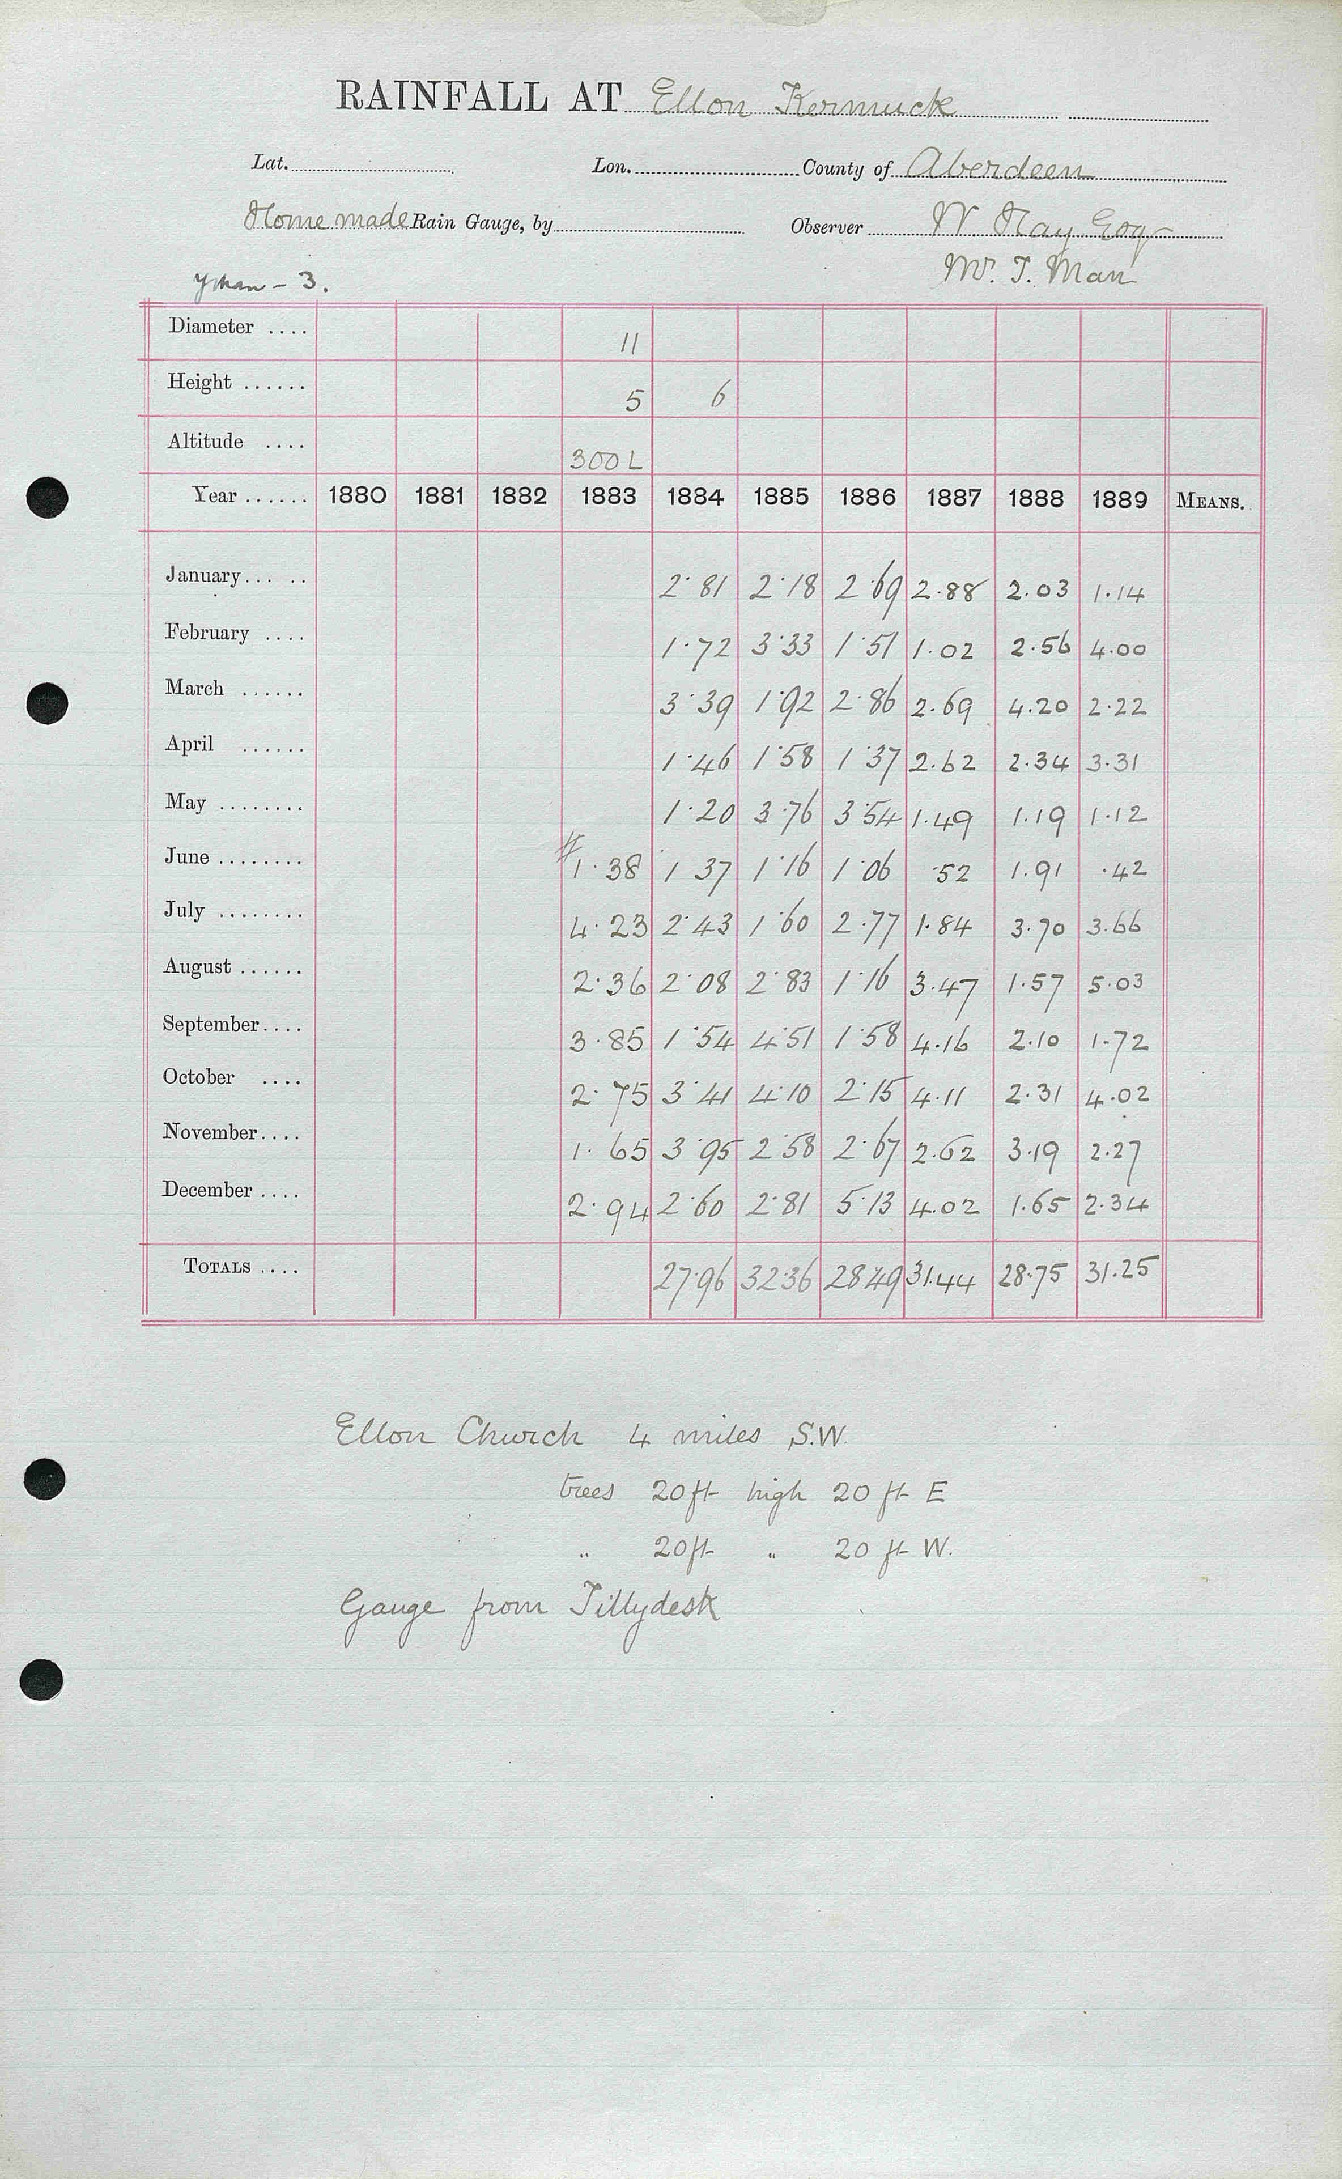 RAINFALL AT Ellon Kermuck
Lat. Lon. County of Aberdeen
Home made Rain Gauge, by Observer W Hay Esq
Mr. T. Man
Ythan - 3.
Diameter .... 11
Height ...... 5 6
Altitude .... 300 L
Year ...... 1880 1881 1882 1883 1884 1885 1886 1887 1888 1889 MEANS.
January ... .. 2.81 2.18 2.69 2.88 2.03 1.14
February .... 1.72 3.33 1.51 1.02 2.56 4.00
March ...... 3.39 1.92 2.86 2.69 4.20 2.22
April ...... 1.46 1.58 1.37 2.62 2.34 3.31
May ........ 1.20 3.76 3.54 1.49 1.19 1.12
June ........ # 1.38 1 37 1.16 1.06 .52 1.91 .42
July ........ 4.23 2.43 1.60 2.77 1.84 3.70 3.66
August ...... 2.36 2.08 2.83 1.16 3.47 1.57 5.03
September .... 3.85 1.54 4.51 1.58 4.16 2.10 1.72
October .... 2.75 3.41 4.10 2.15 4.11 2.31 4.02
November .... 1.65 3.95 2.58 2.67 2.62 3.19 2.27
December .... 2.94 2.60 2.81 5.13 4.02 1.65 2.34
TOTALS .... 27.96 32.36 28.49 31.44 28.75 31.25
Ellon Church 4 miles S.W.
trees 20 ft high 20 ft E
" 20 ft " 20 ft W.
Gauge from Tillydesk